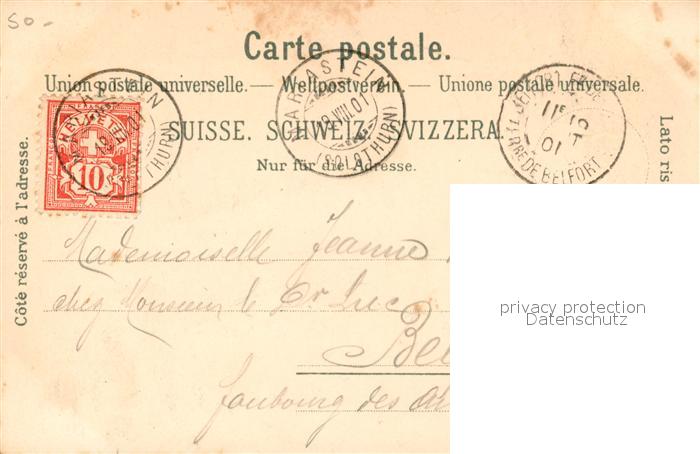 50-
Carte postale.
Union postale universelle. — Weltpostverein. — Unione postale universale.
SUISSE. SCHWEIZ. SVIZZERA.
Nur für die Adresse.
Côté réservé à l'adresse.
Lato ris
HELVETIA
10
MARIASTEIN
18.VIII.01
(SOLOTHURN)
BELFORT
11E
01
TERRE DE BELFORT
Mademoiselle Jeanne
chez Monsieur le Dr Luc
Bel
faubourg des
privacy protection
Datenschutz